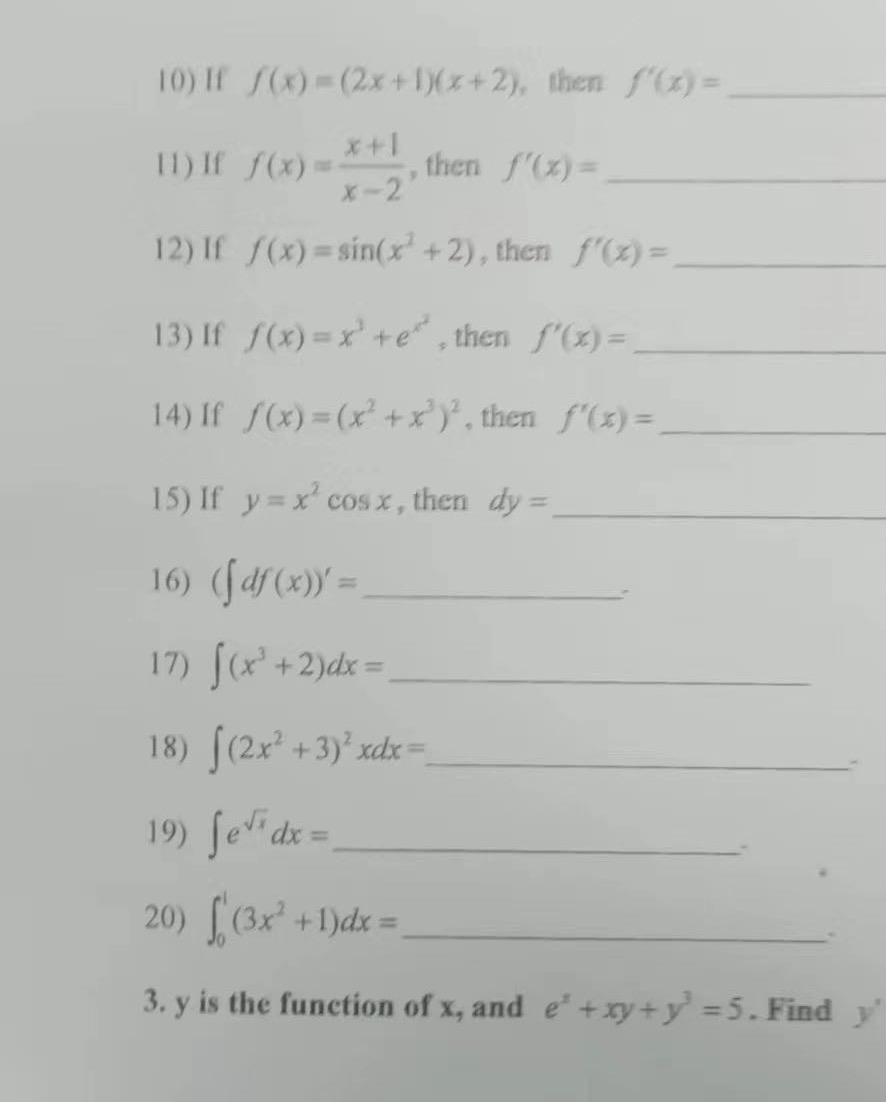 10) If f(x) = (2x+1)(x+2), then f'(x) = ________
11) If f(x) = \frac{x+1}{x-2}, then f'(x) = ________
12) If f(x) = sin(x² + 2), then f'(x) = ________
13) If f(x) = x³ + e^{x²}, then f'(x) = ________
14) If f(x) = (x² + x³)², then f'(x) = ________
15) If y = x² cos x, then dy = ________
16) (∫ df(x))' = ________.
17) ∫(x³ + 2)dx = ________
18) ∫(2x² + 3)² xdx = ________.
19) ∫e^{√x} dx = ________.
20) ∫₀¹(3x² + 1)dx = ________.
3. y is the function of x, and eˣ + xy + y³ = 5. Find y'